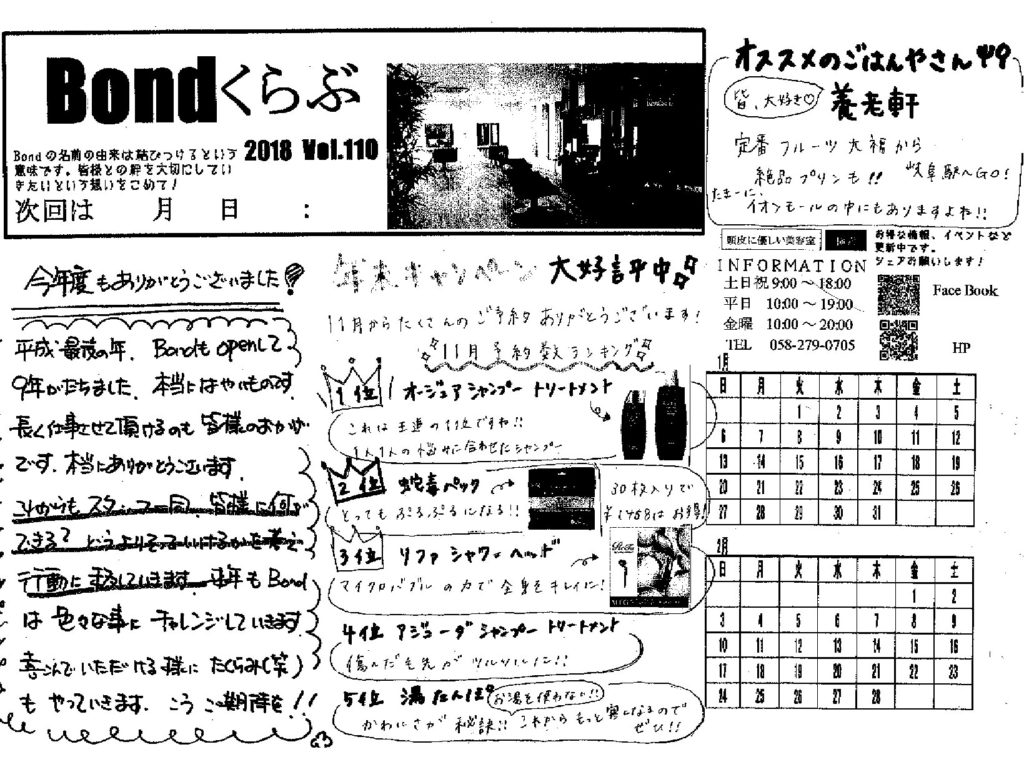 Bondくらぶ
2018 Vol.110
Bondの名前の由来は結びつけるという
意味です。皆様との絆を大切にしてい
きたいという想いをこめて！
次回は　　月　　日　　：
今年度もありがとうございました！
平成最後の年、Bondもopenして
9年がたちました。本当にはやいものです。
長く仕事させて頂けるのも皆様のおかげ
です。本当にありがとうございます。
これからもスタッフ一同、皆様に何が
できる？
行動に　していきます。来年もBond
は色々な事にチャレンジしていきます
喜こんでいただける様にたくらみ(笑)
も やっていきます。こう ご期待を！！
年末キャンペーン 大好評中
11月からたくさんのご予約ありがとうございます！
11月予約数ランキング
1位 オージュアシャンプー トリートメント
これは王道の1位ですね!!
1人1人の悩みに合わせたシャンプー
2位 蛇毒パック
とってもぷるぷるになる!!
30枚入りで
¥1458はお得！
3位 リファ シャワーヘッド
マイクロバブルの力で全身をキレイに！
ReFa
4位 アジューダシャンプー トリートメント
傷んだ毛先がツルツルに!!
5位 湯たんぽ
お湯を使わない!!
かわいさが秘訣!! これからもっと寒くなるので
ぜひ!!
オススメのごはんやさん
皆、大好き♡
養老軒
定番フルーツ大福から
絶品プリンも!! 岐阜駅へGO!
たまーに、
イオンモールの中にもありますよね!!
頭皮に優しい美容室
お得な情報、イベントなど
更新中です。
シェアお願いします！
INFORMATION
土日祝 9:00～18:00
平日 10:00～19:00
金曜 10:00～20:00
TEL 058-279-0705
Face Book
HP
1月
日 月 火 水 木 金 土
1 2 3 4 5
6 7 8 9 10 11 12
13 14 15 16 17 18 19
20 21 22 23 24 25 26
27 28 29 30 31
2月
日 月 火 水 木 金 土
1 2
3 4 5 6 7 8 9
10 11 12 13 14 15 16
17 18 19 20 21 22 23
24 25 26 27 28